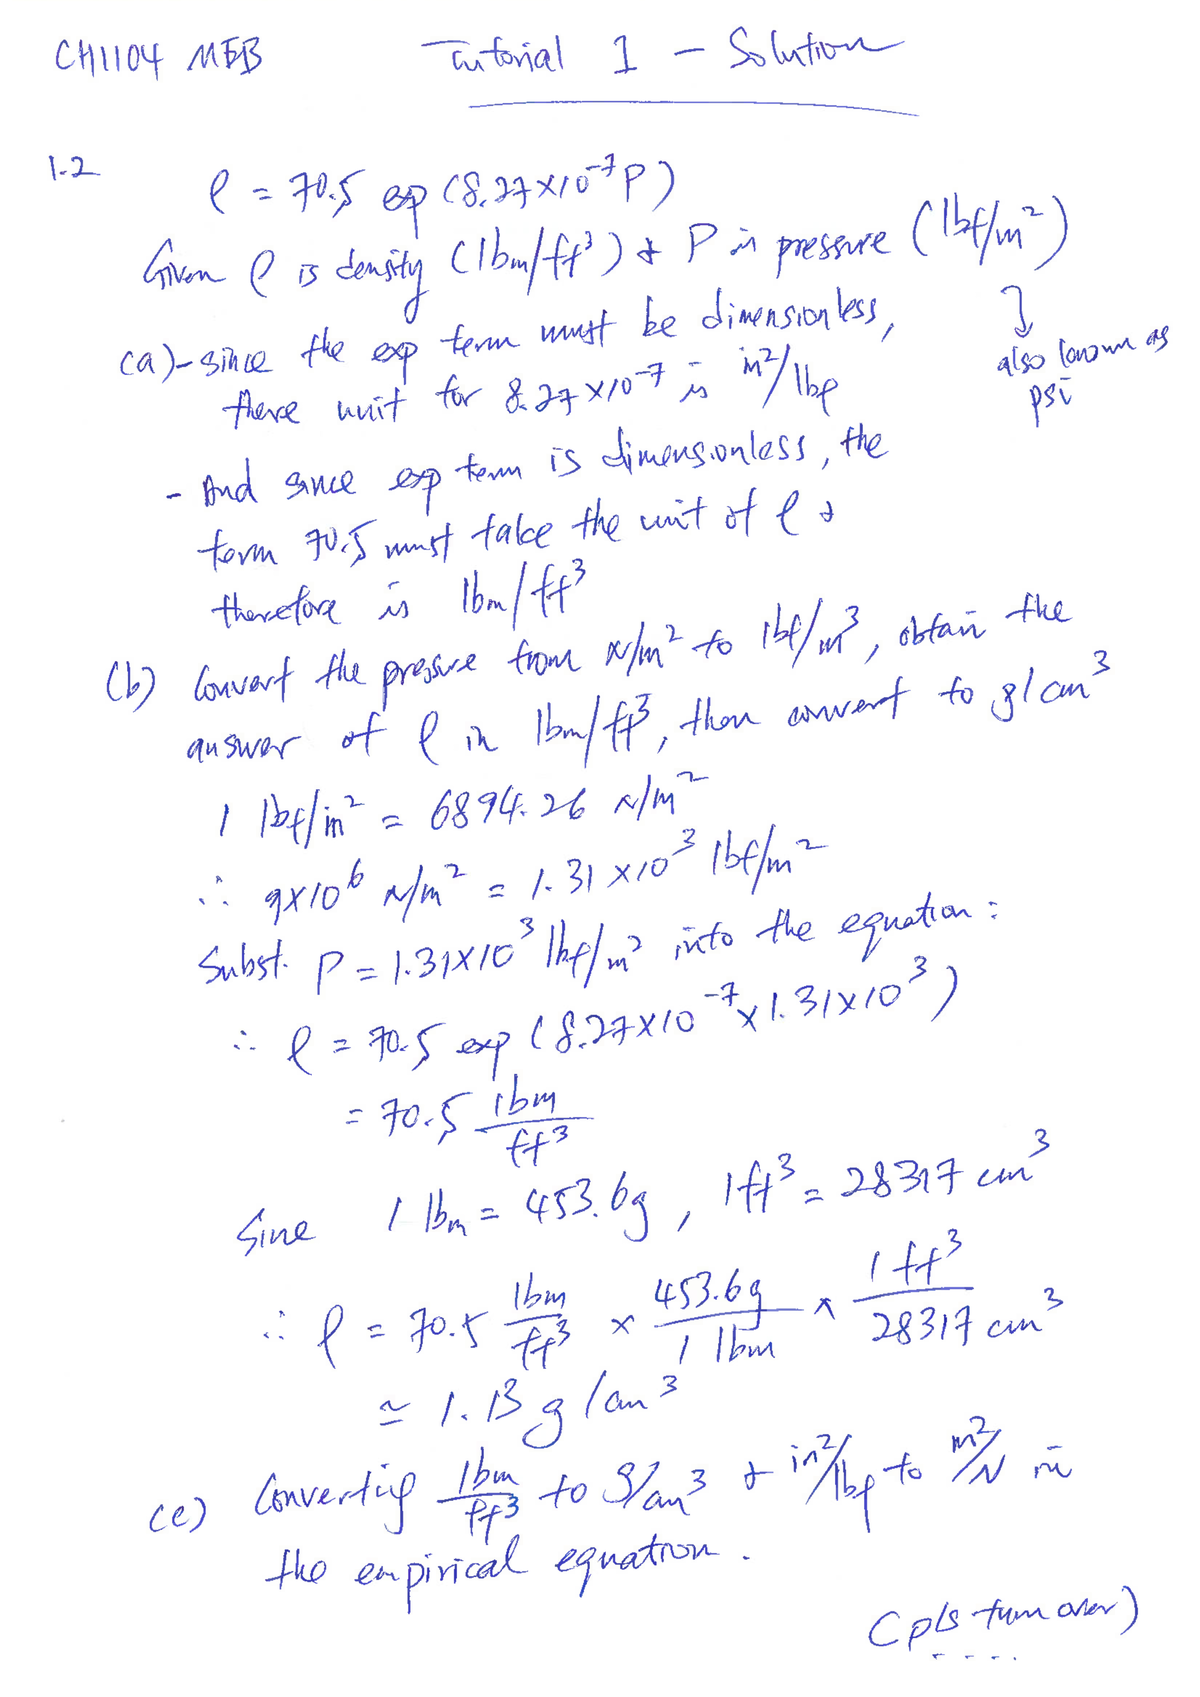 CH1104 MEB Tutorial 1 - Solution
1.2 ρ = 70.5 exp (8.27×10⁻⁷P)
Given ρ is density (lbm/ft³) & P is pressure (lbf/in²)
(a) - since the exp term must be dimensionless,
there unit for 8.27×10⁻⁷ is in²/lbf
↓ also known as
psi
- And since exp term is dimensionless, the
term 70.5 must take the unit of ρ &
therefore is lbm/ft³
(b) Convert the pressure from N/m² to lbf/in³, obtain the
answer of ρ in lbm/ft³, then convert to g/cm³
1 lbf/in² = 6894.26 N/m²
∴ 9×10⁶ N/m² = 1.31×10³ lbf/in²
Subst. P = 1.31×10³ lbf/in² into the equation:
∴ ρ = 70.5 exp (8.27×10⁻⁷×1.31×10³)
= 70.5 lbm/ft³
Sine 1 lbm = 453.6g, 1ft³ = 28317 cm³
∴ ρ = 70.5 lbm/ft³ × 453.6g/1 lbm × 1 ft³/28317 cm³
≃ 1.13 g/cm³
(c) Converting lbm/ft³ to g/cm³ & in²/lbf to m²/N in
the empirical equation.
(pls turn over)